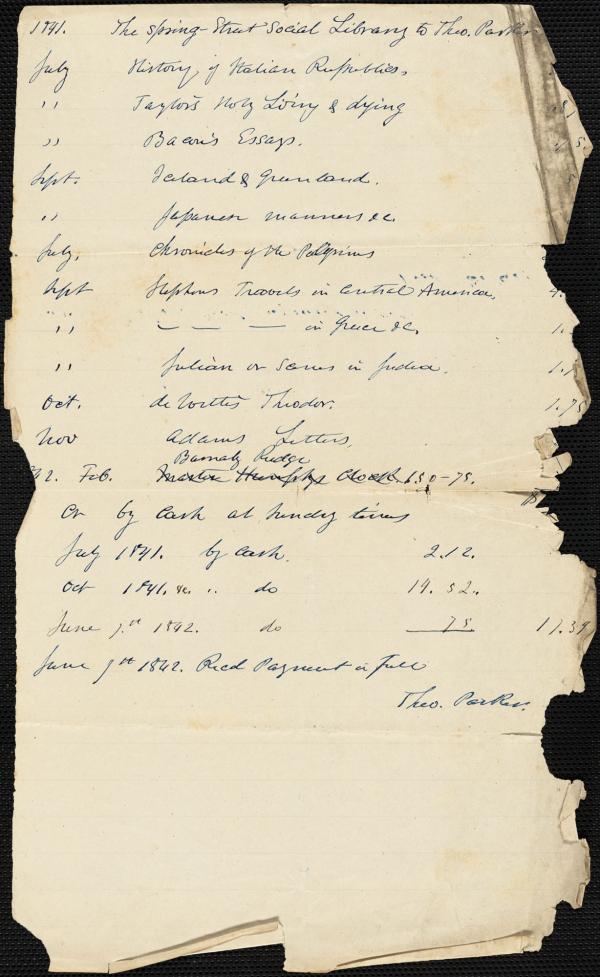 1841. The Spring-Street Social Library to Theo. Parker
July History of Italian Republics,
,, Taylor's Holy Living & dying
,, Bacon's Essays.
Sept. Iceland & Greenland.
,, Japanese manners &c.
July, Chronicles of the Pilgrims
Sept Stephens Travels in Central America, 4.
,, — — — in Greece &c. 1.
,, Julian or Scenes in Judea. 1.
Oct. de Wette's Theodor. 1.75
Nov Adams Letters,
Barnaby Rudge
42. Feb. Master Humphrys Clock. 1.50-75.
Cr by Cash at Sundry times
July 1841. by Cash. 2.12.
Oct 1841. &c. ,, do 14. 52.
June 7th 1842. do 75 17.39
June 7th 1842. Recd Payment in full
Theo. Parker.